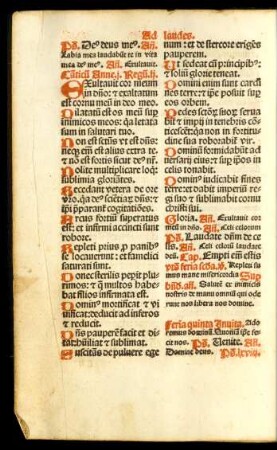 Ad
Ps. Deus deus meus. Añ.
Labia mea laudabūt te in vita
mea deus me⁹. Añ. Exultauit.
Canticū Anne. j. Regū. ij.
Exultauit cor meum
in dño: et exaltatum
est cornu meū in deo meo
Dilatatū est os meū sup
inimicos meos: q̃a letata
sum in salutari tuo.
Non est sctūs vt est dñs:
neq̄ em̄ est alius extra te.
et nō est fortis sicut de⁹ nr̄.
Nolite multiplicare loq̄:
sublimia gloriātes.
Recedant vetera de ore
vr̄o. q̃a de⁹ sciētiaꝝ dn̄s est
ipi p̄parant̄ cogitatiōes.
Arcus fortiū superatus
est: et infirmi accincti sunt
robore.
Repleti prius ꝓ panib⁹
se locauerunt: et famelici
saturati sunt.
Donec sterilis pepit pluri
mos: et q̄ multos habe
bat filios infirmata est.
Domin⁹ mortificat et vi
uificat: deducit ad inferos
et reducit.
Dn̄s pauperē facit et di
tat: hūiliat et sublimat.
Suscitās de puluere ege
laudes.
num: et de stercore erigēs
pauperem.
Ut sedeat cū principib⁹:
et soliū glorie teneat.
Domini enim sunt cardi
nes terre: et posuit sup
eos orbem.
Pedes sctoꝝ suoꝝ serua
bit: et impij in tenebris
conticescēt: q̃a non in fortitu
dine sua roborabit̄ vir.
Dominū formidabūt ad
uersarij eius: et sup ip̄os in
celis tonabit.
Domin⁹ iudicabit fines
terre: et dabit imperiū re
gi suo et sublimabit cornu
christi sui.
Gloria. Añ. Exultauit cor
meū in dño. Añ. Celi celorum
Ps. Laudate dūm de ce
lis. Añ. Celi celorū laudate
deū. Cap. Empti em̄ estis
vt sī feria scda. V. Repleti su
mus mane misericordia. Sup
bn̄d. añ. Salutē ex inimicis
nostris et de manu omniū qui ode
runt nos libera nos domine.
feria quinta Inuita. Ado
remus dominū. Quoniā ip̄e fe
cit nos. Ps. Venite. Añ.
Domine deus. Ps. lxxix.